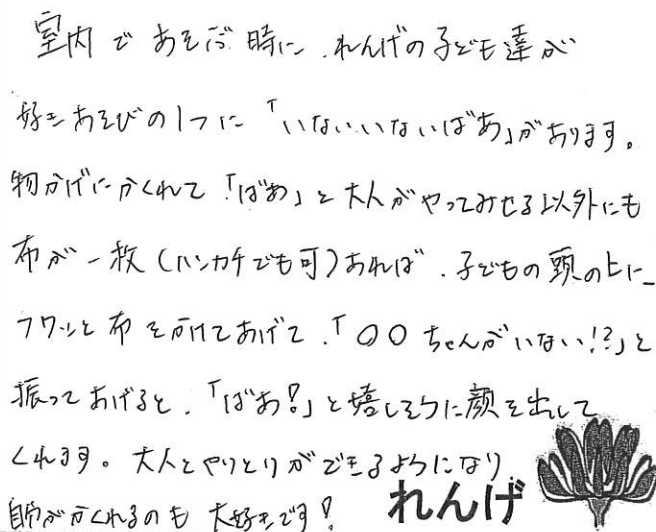 室内であそぶ時に、れんげの子ども達が
好きあそびの1つに「いないいないばあ」があります。
物かげにかくれて「ばあ」と大人がやってみせる以外にも
布が一枚(ハンカチでも可)あれば、子どもの頭の上に
フワッと布をかけてあげて、「〇〇ちゃんがいない!?」と
振ってあげると、「ばあ!」と嬉しそうに顔を出して
くれます。大人とやりとりができるようになり
自分がかくれるのも大好きです!
れんげ